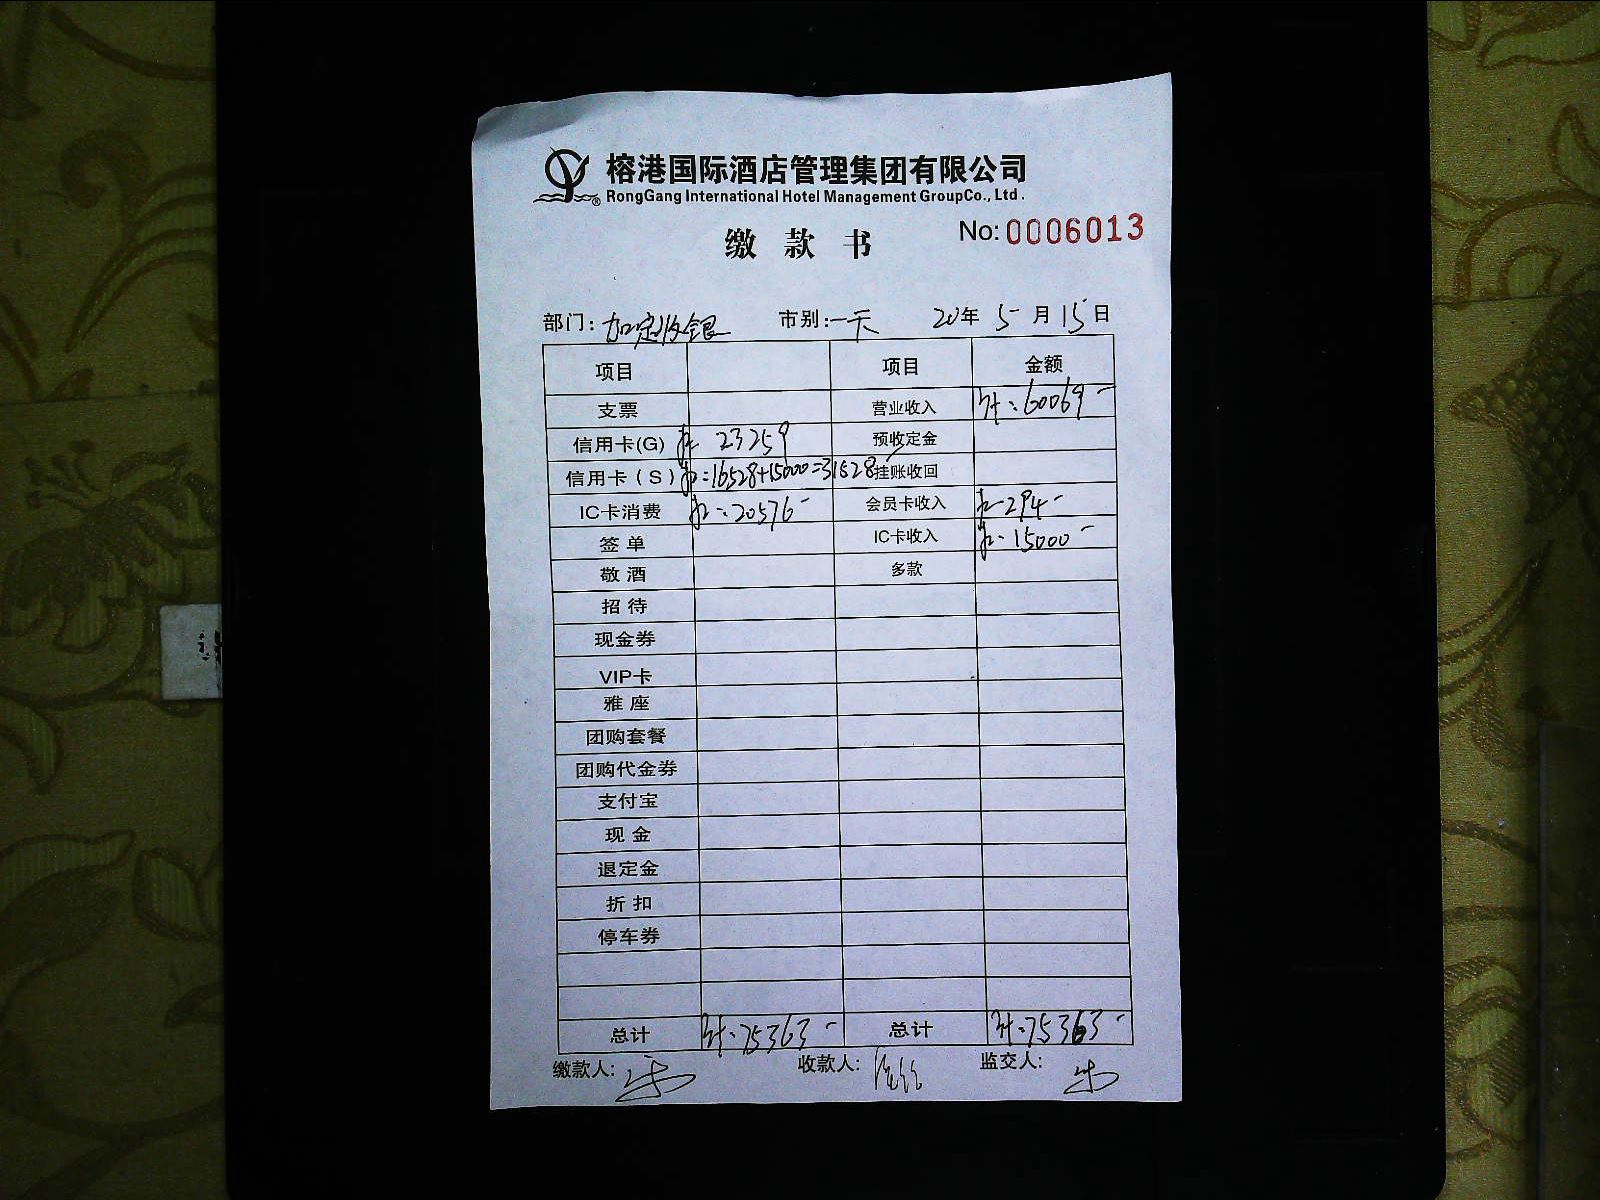 榕港国际酒店管理集团有限公司
® RongGang International Hotel Management GroupCo., Ltd.
缴款书
No: 0006013
部门: 加定收银 市别: 一天 20年 5月 15日
项目 项目 金额
支票 营业收入 计: 60069-
信用卡(G) 23259 预收定金
信用卡(S) :16528+15000=31528 挂账收回
IC卡消费 :20576- 会员卡收入 294-
签单 IC卡收入 15000-
敬酒 多款
招待
现金券
VIP卡
雅座
团购套餐
团购代金券
支付宝
现金
退定金
折扣
停车券
总计 计:75363- 总计 计:75363-
缴款人: 收款人: 监交人: